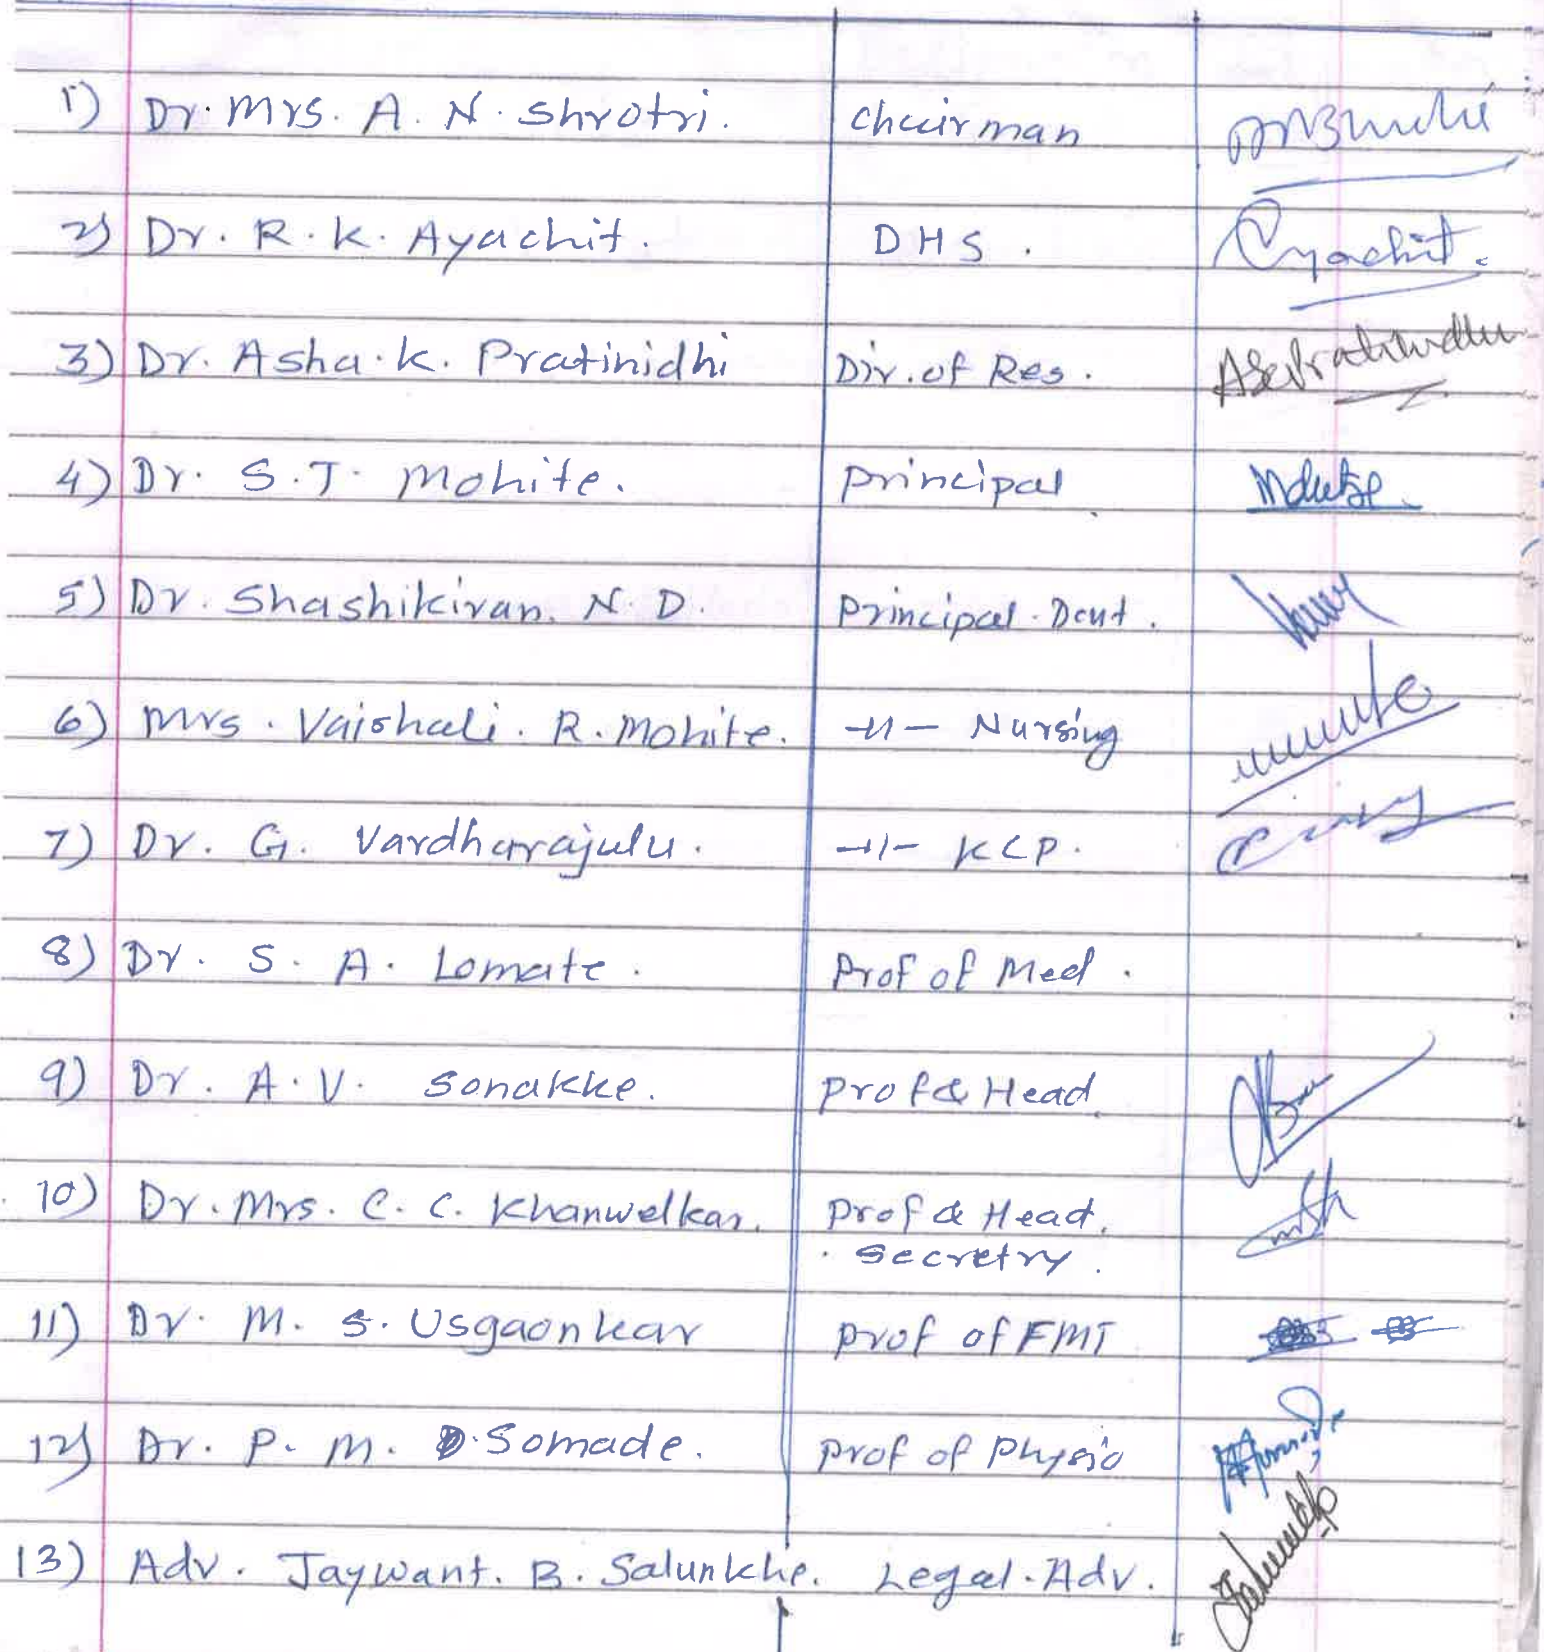 1) Dr. Mrs. A. N. Shrotri. Chairman
2) Dr. R. K. Ayachit. DHS. Ayachit.
3) Dr. Asha. K. Pratinidhi Dir. of Res.
4) Dr. S. T. Mohite. Principal
5) Dr. Shashikiran. N. D. Principal. Dent.
6) Mrs. Vaishali. R. Mohite. -11- Nursing
7) Dr. G. Vardharajulu. -11- KCP.
8) Dr. S. A. Lomate. Prof of Med.
9) Dr. A. V. Sonakke. Prof & Head.
10) Dr. Mrs. C. C. Khanwelkar. Prof & Head.
Secretry.
11) Dr. M. S. Usgaonkar Prof of FMT
12) Dr. P. M. Somade. Prof of Physio
13) Adv. Jaywant. B. Salunkhe. Legal. Adv.